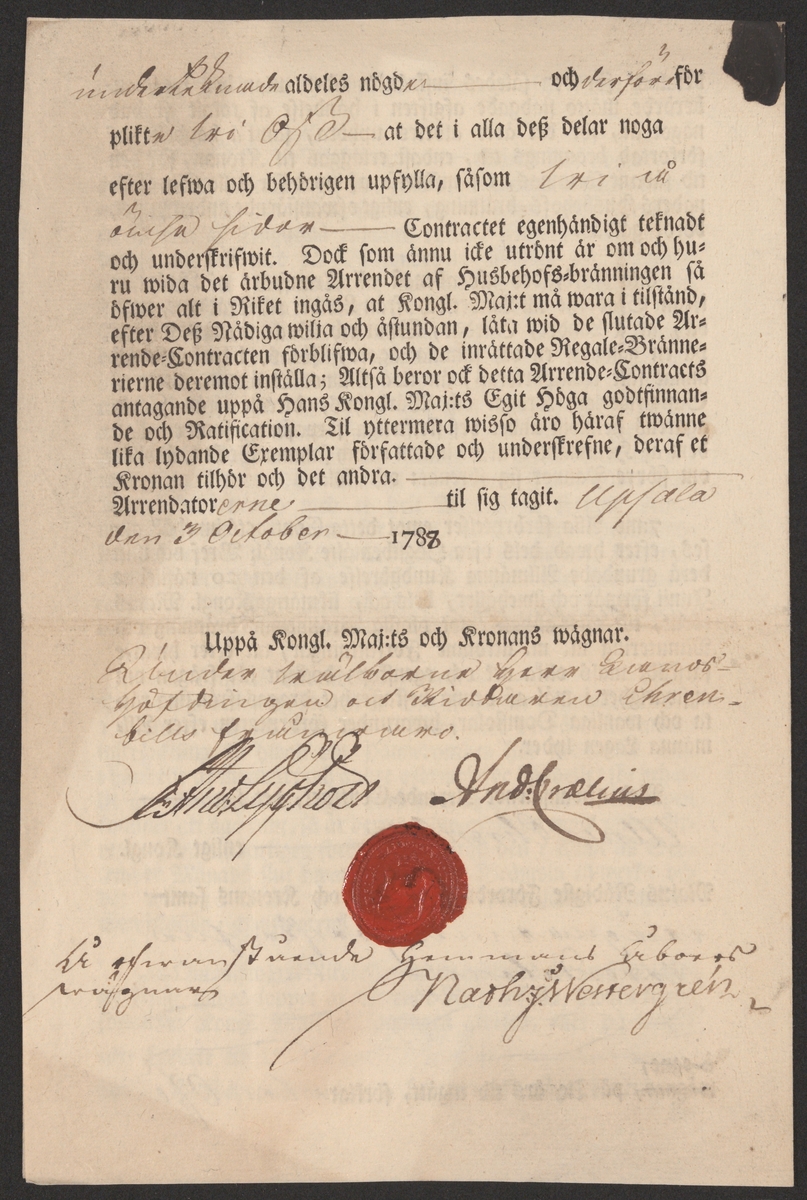 undertecknade aldeles nögde och derföre för
plikte wi Oss at det i alla deß delar noga
efter lefwa och behörigen upfylla, såsom wi å
ömse sidor Contractet egenhändigt teknadt
och underskrifwit. Dock som ännu icke utrönt är om och hu-
ru wida det ärbudne Arrendet af Husbehofs-bränningen så
öfwer alt i Riket ingås, at Kongl. Maj:t må wara i tilstånd,
efter Deß Nådiga wilja och åstundan, låta wid de slutade Ar-
rende-Contracten förblifwa, och de inrättade Regale-Bränne-
rierne deremot inställa; Altså beror ock detta Arrende-Contracts
antagande uppå Hans Kongl. Maj:ts Egit Höga godtfinnan-
de och Ratification. Til yttermera wisso äro häraf twänne
lika lydande Exemplar författade och underskrefne, deraf et
Kronan tilhör och det andra.
Arrendatorerne til sig tagit. Upsala
den 3 October 1788
Uppå Kongl. Maj:ts och Kronans wägnar.
Under wälborne Herr Lands-
höfdingen och Riddaren Ehren-
bills frånwaro.
And: Crælius
På ofwanstående Hemmans Åboers
wägnar Westergrén